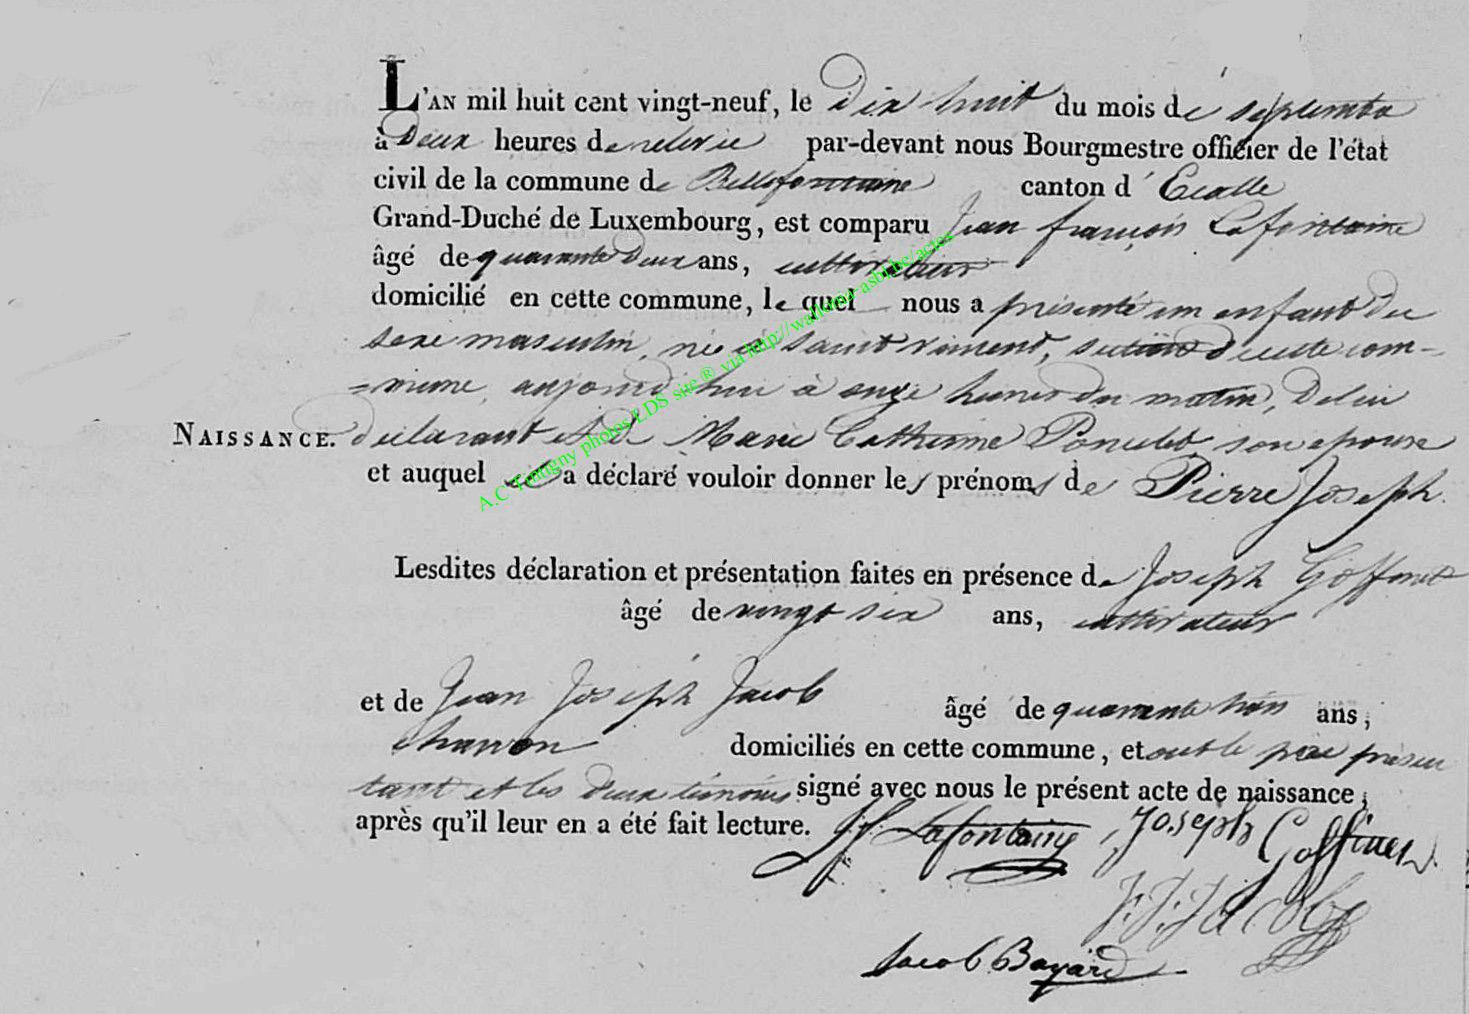 L'AN mil huit cent vingt-neuf, le dix huit du mois de septembre
à deux heures de relevée par-devant nous Bourgmestre officier de l'état
civil de la commune de Bellefontaine canton d'Etalle
Grand-Duché de Luxembourg, est comparu Jean françois Lafontaine
âgé de quarante deux ans, cultivateur
domicilié en cette commune, le quel nous a présenté un enfant du
sexe masculin, né à saint vincent, section de cette com-
=mune, aujourd'hui à onze heures du matin, De lui
NAISSANCE. déclarant et de Marie Catherine Poncelet, son épouse
et auquel il a déclaré vouloir donner les prénoms de Pierre Joseph.
Lesdites déclaration et présentation faites en présence de Joseph Goffinet
âgé de vingt six ans, cultivateur
et de Jean Joseph Jacob âgé de quarante trois ans,
charron domiciliés en cette commune, et ont le père présen
tant et les deux témoins signé avec nous le présent acte de naissance,
après qu'il leur en a été fait lecture. J f Lafontaine, Joseph Goffinet
J. J. Jacob
Jacob Bayard
A.C Tintigny photos LDS site ® via http://wallonia-asbl.be/actes